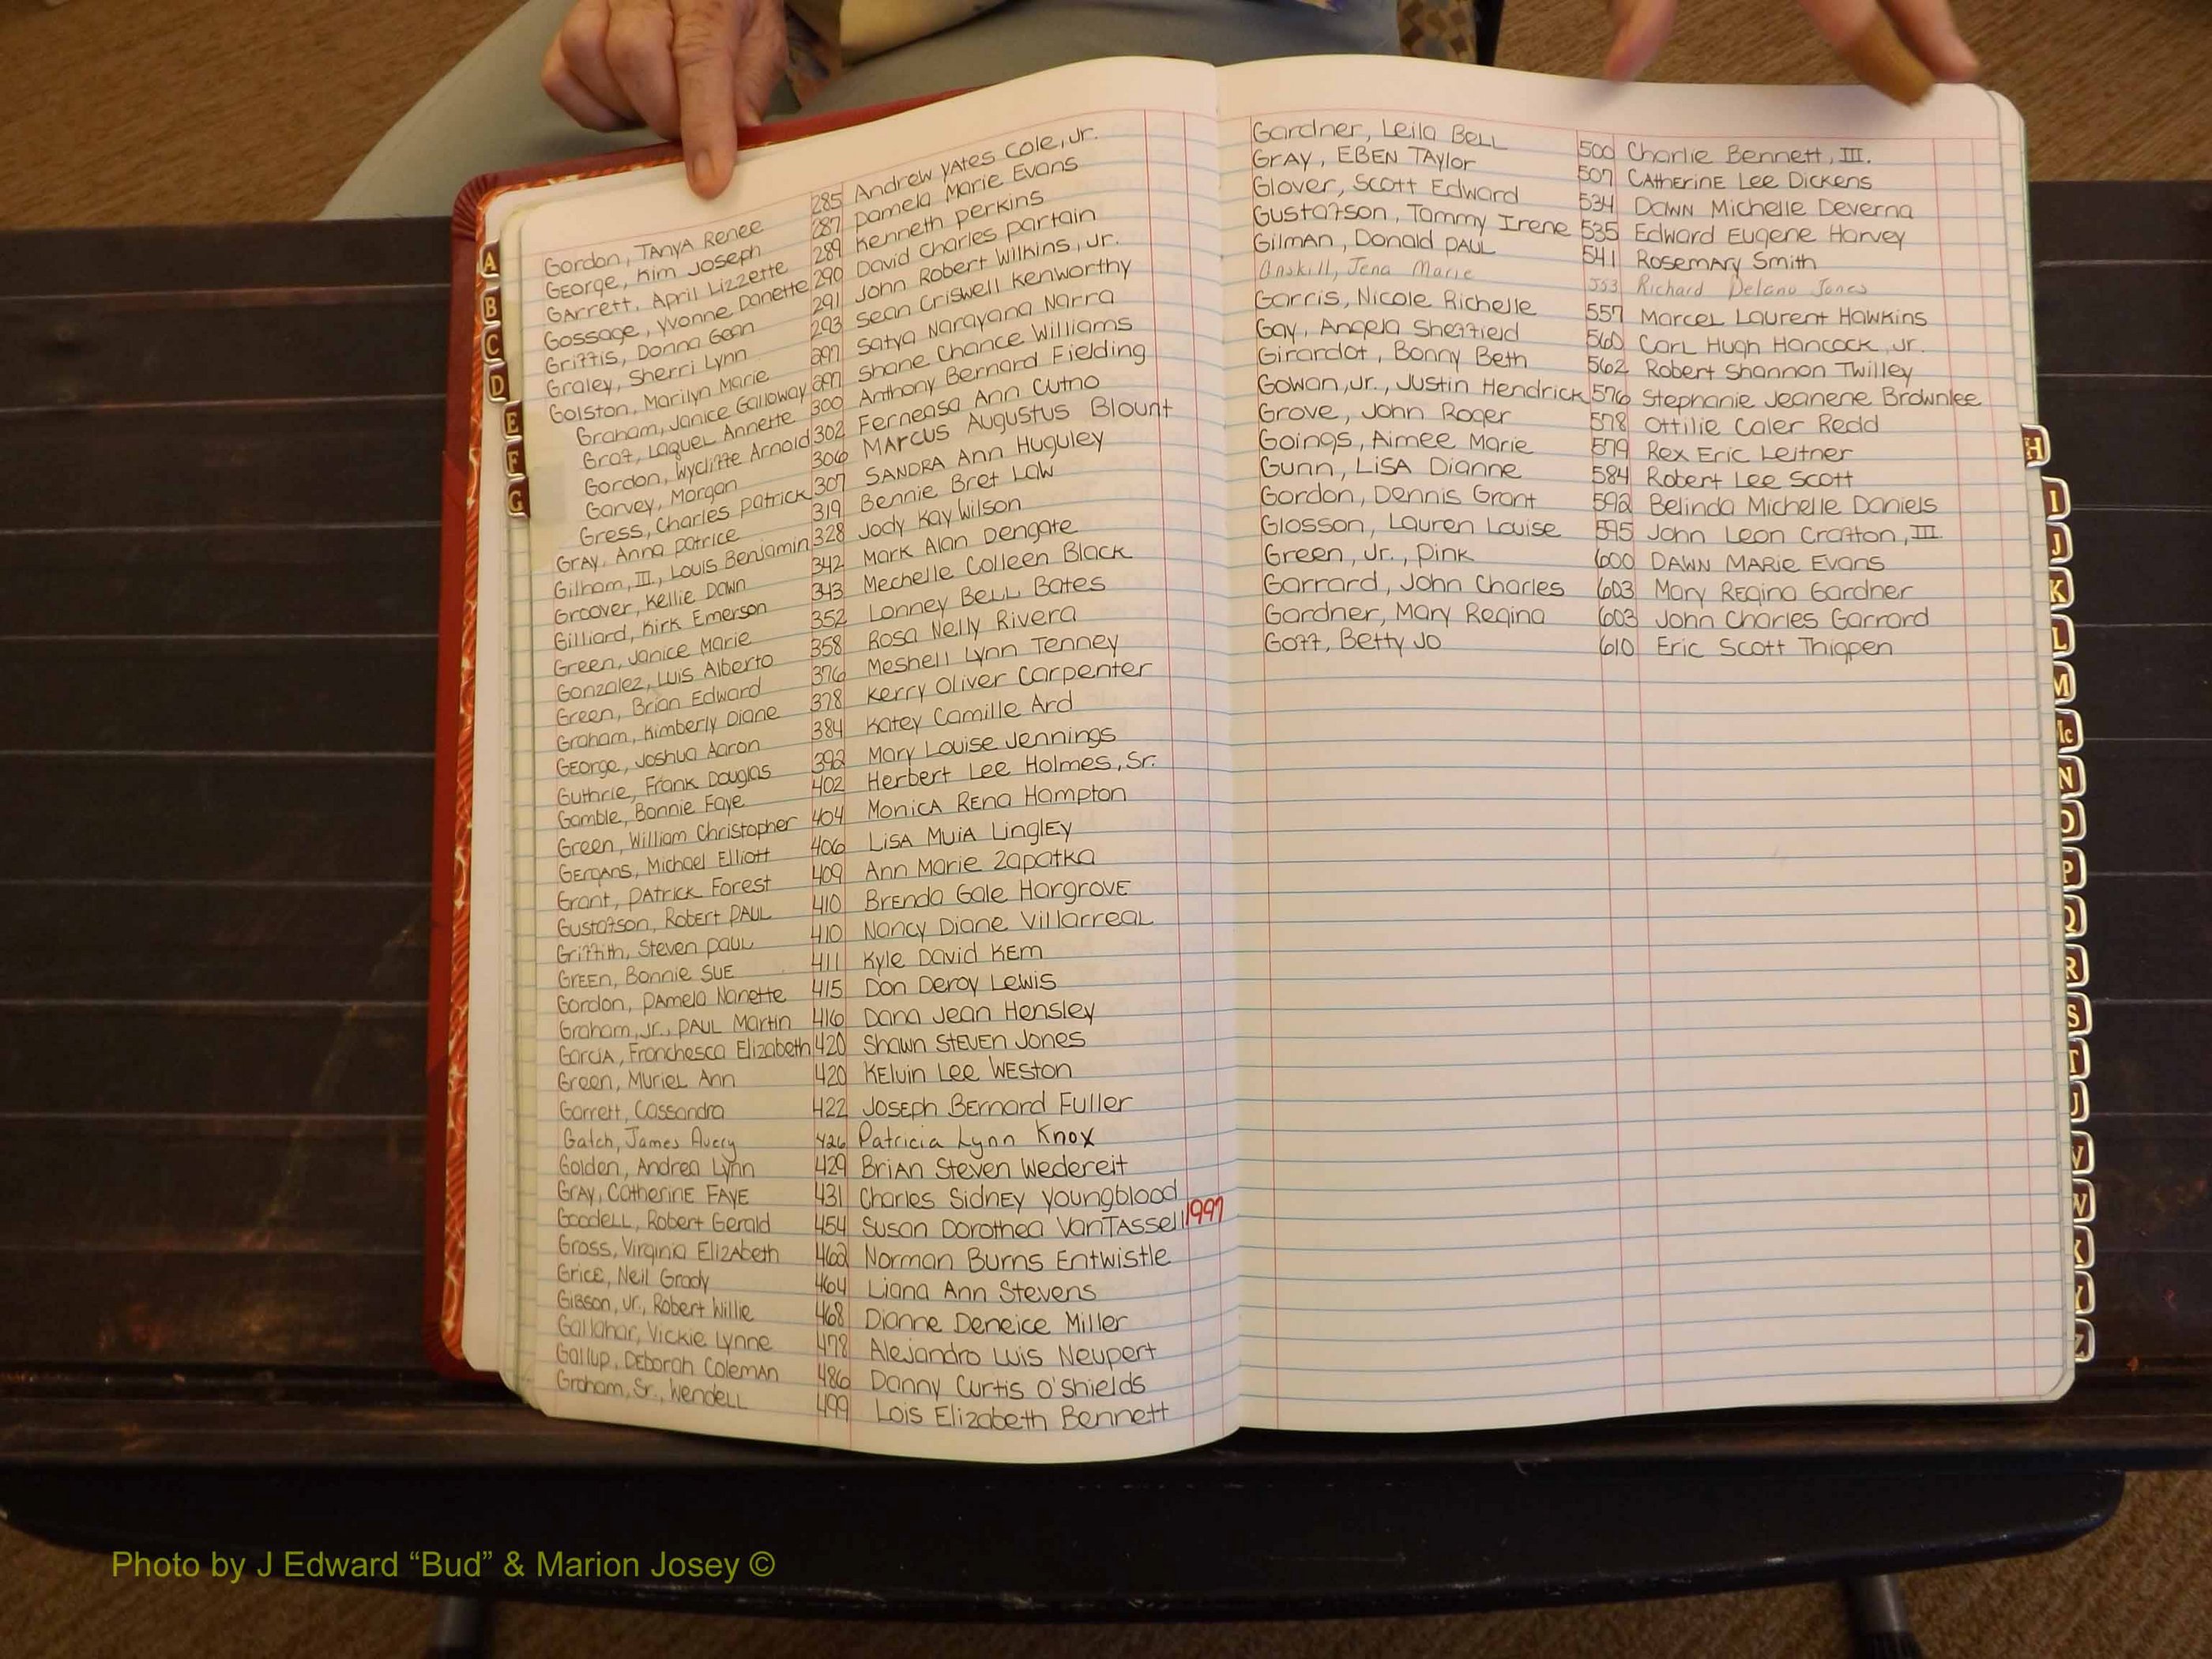 Gordon, Tanya Renee 285 Andrew Yates Cole, Jr.
George, Kim Joseph 287 Pamela Marie Evans
Garrett, April Lizzette 289 Kenneth Perkins
Gossage, Yvonne Danette 290 David Charles Partain
Griffis, Donna Gean 291 John Robert Wilkins, Jr.
Graley, Sherri Lynn 293 Sean Criswell Kenworthy
Golston, Marilyn Marie 297 Satya Narayana Narra
Graham, Janice Galloway 297 Shane Chance Williams
Graf, Laquel Annette 300 Anthony Bernard Fielding
Gordon, Wycliffe Arnold 302 Ferneasa Ann Cutno
Garvey, Morgan 306 Marcus Augustus Blount
Gress, Charles Patrick 307 Sandra Ann Huguley
Gray, Anna Patrice 319 Bennie Bret Law
Gilham, III., Louis Benjamin 328 Jody Kay Wilson
Groover, Kellie Dawn 342 Mark Alan Dengate
Gilliard, Kirk Emerson 343 Mechelle Colleen Black
Green, Janice Marie 352 Lonney Bell Bates
Gonzalez, Luis Alberto 358 Rosa Nelly Rivera
Green, Brian Edward 376 Meshell Lynn Tenney
Graham, Kimberly Diane 378 Kerry Oliver Carpenter
George, Joshua Aaron 384 Katey Camille Ard
Guthrie, Frank Douglas 392 Mary Louise Jennings
Gamble, Bonnie Faye 402 Herbert Lee Holmes, Sr.
Green, William Christopher 404 Monica Rena Hampton
Gergans, Michael Elliott 406 Lisa Muia Lingley
Grant, Patrick Forest 409 Ann Marie Zapatka
Gustafson, Robert Paul 410 Brenda Gale Hargrove
Griffith, Steven Paul 410 Nancy Diane Villarreal
Green, Bonnie Sue 411 Kyle David Kem
Gordon, Pamela Nanette 415 Don Deroy Lewis
Graham, Jr., Paul Martin 416 Dana Jean Hensley
Garcia, Franchesca Elizabeth 420 Shawn Steven Jones
Green, Muriel Ann 420 Kelvin Lee Weston
Garrett, Cassandra 422 Joseph Bernard Fuller
Gatch, James Avery 426 Patricia Lynn Knox
Golden, Andrea Lynn 429 Brian Steven Wedereit
Gray, Catherine Faye 431 Charles Sidney Youngblood
Goodell, Robert Gerald 454 Susan Dorothea VanTassell 1997
Gross, Virginia Elizabeth 462 Norman Burns Entwistle
Grice, Neil Grady 464 Liana Ann Stevens
Gibson, Jr., Robert Willie 468 Dianne Deneice Miller
Gallahar, Vickie Lynne 478 Alejandro Luis Neupert
Gallup, Deborah Coleman 486 Danny Curtis O'Shields
Graham, Sr., Wendell 499 Lois Elizabeth Bennett
Gardner, Leila Bell 500 Charlie Bennett, III.
Gray, Eben Taylor 507 Catherine Lee Dickens
Glover, Scott Edward 534 Dawn Michelle Deverna
Gustafson, Tammy Irene 535 Edward Eugene Harvey
Gilman, Donald Paul 541 Rosemary Smith
Jena Marie 553 Richard Delano Jones
Garris, Nicole Richelle 557 Marcel Laurent Hawkins
Gay, Angela Sheffield 560 Carl Hugh Hancock, Jr.
Girardot, Bonny Beth 562 Robert Shannon Twilley
Gowan, Jr., Justin Hendrick 576 Stephanie Jeanene Brownlee
Grove, John Roger 578 Ottilie Caler Redd
Goings, Aimee Marie 579 Rex Eric Leitner
Gunn, Lisa Dianne 584 Robert Lee Scott
Gordon, Dennis Grant 592 Belinda Michelle Daniels
Glosson, Lauren Louise 595 John Leon Crafton, III.
Green, Jr., Pink 600 Dawn Marie Evans
Garrard, John Charles 603 Mary Regina Gardner
Gardner, Mary Regina 603 John Charles Garrard
Goff, Betty Jo 610 Eric Scott Thigpen
A
B
C
D
E
F
G
H
I
J
K
L
M
Mc
N
O
P
Q
R
S
T
U
V
W
X
Y
Z
Photo by J Edward “Bud” & Marion Josey ©